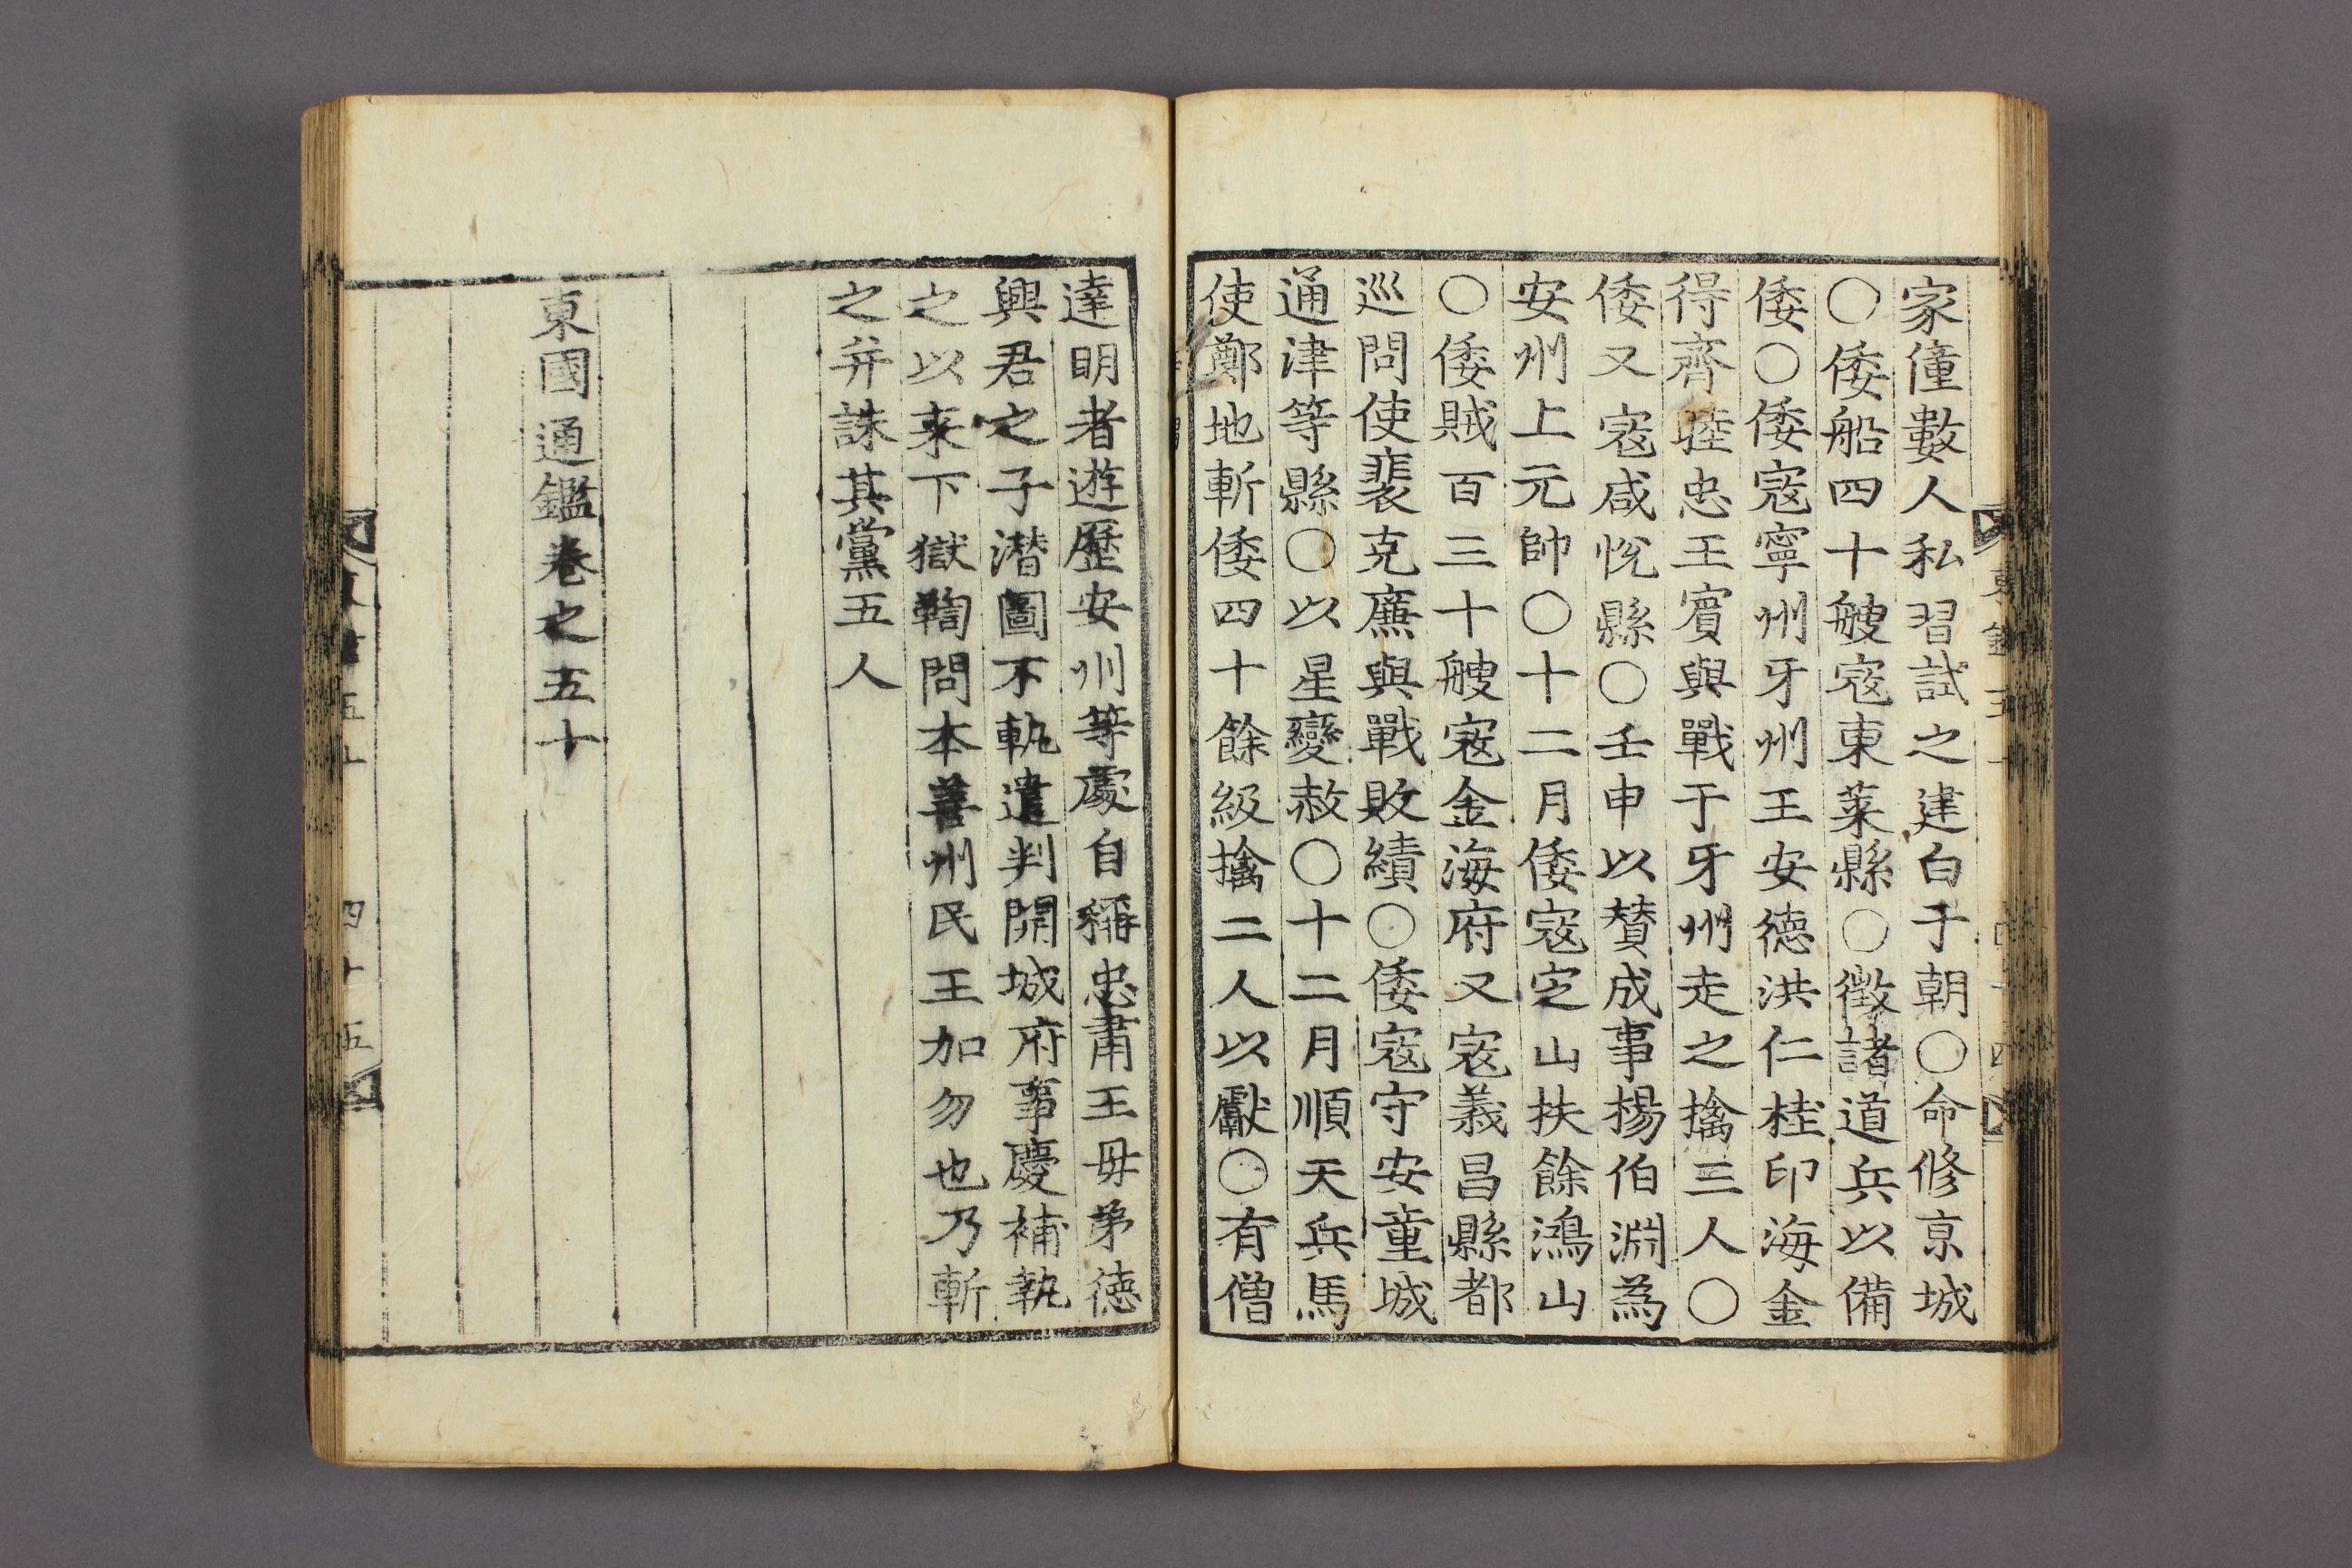 家僮數人私習試之建白于朝○命修京城
○倭船四十艘寇東萊縣○徵諸道兵以備
倭○倭寇寧州牙州王安德洪仁桂印海金
得齊睦忠王賓與戰于牙州走之擒三人○
倭又寇咸悅縣○壬申以贊成事楊伯淵為
安州上元帥○十二月倭寇定山扶餘鴻山
○倭賊百三十艘寇金海府又寇義昌縣都
巡問使裴克廉與戰敗績○倭寇守安童城
通津等縣○以星變赦○十二月順天兵馬
使鄭地斬倭四十餘級擒二人以獻○有僧
達明者遊歷安州等處自稱忠肅王毋弟德
興君之子潛圖不軌遣判開城府事慶補執
之以来下獄鞫問本善州民王加勿也乃斬
之并誅其黨五人
東國通鑑卷之五十
四十五